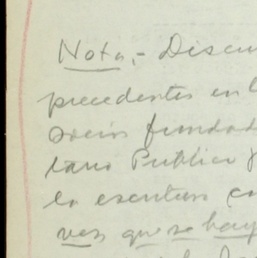 Nota,- Discu
precedentes en l
socios fundad
tario Publico y
la escritura co
vez que se hay